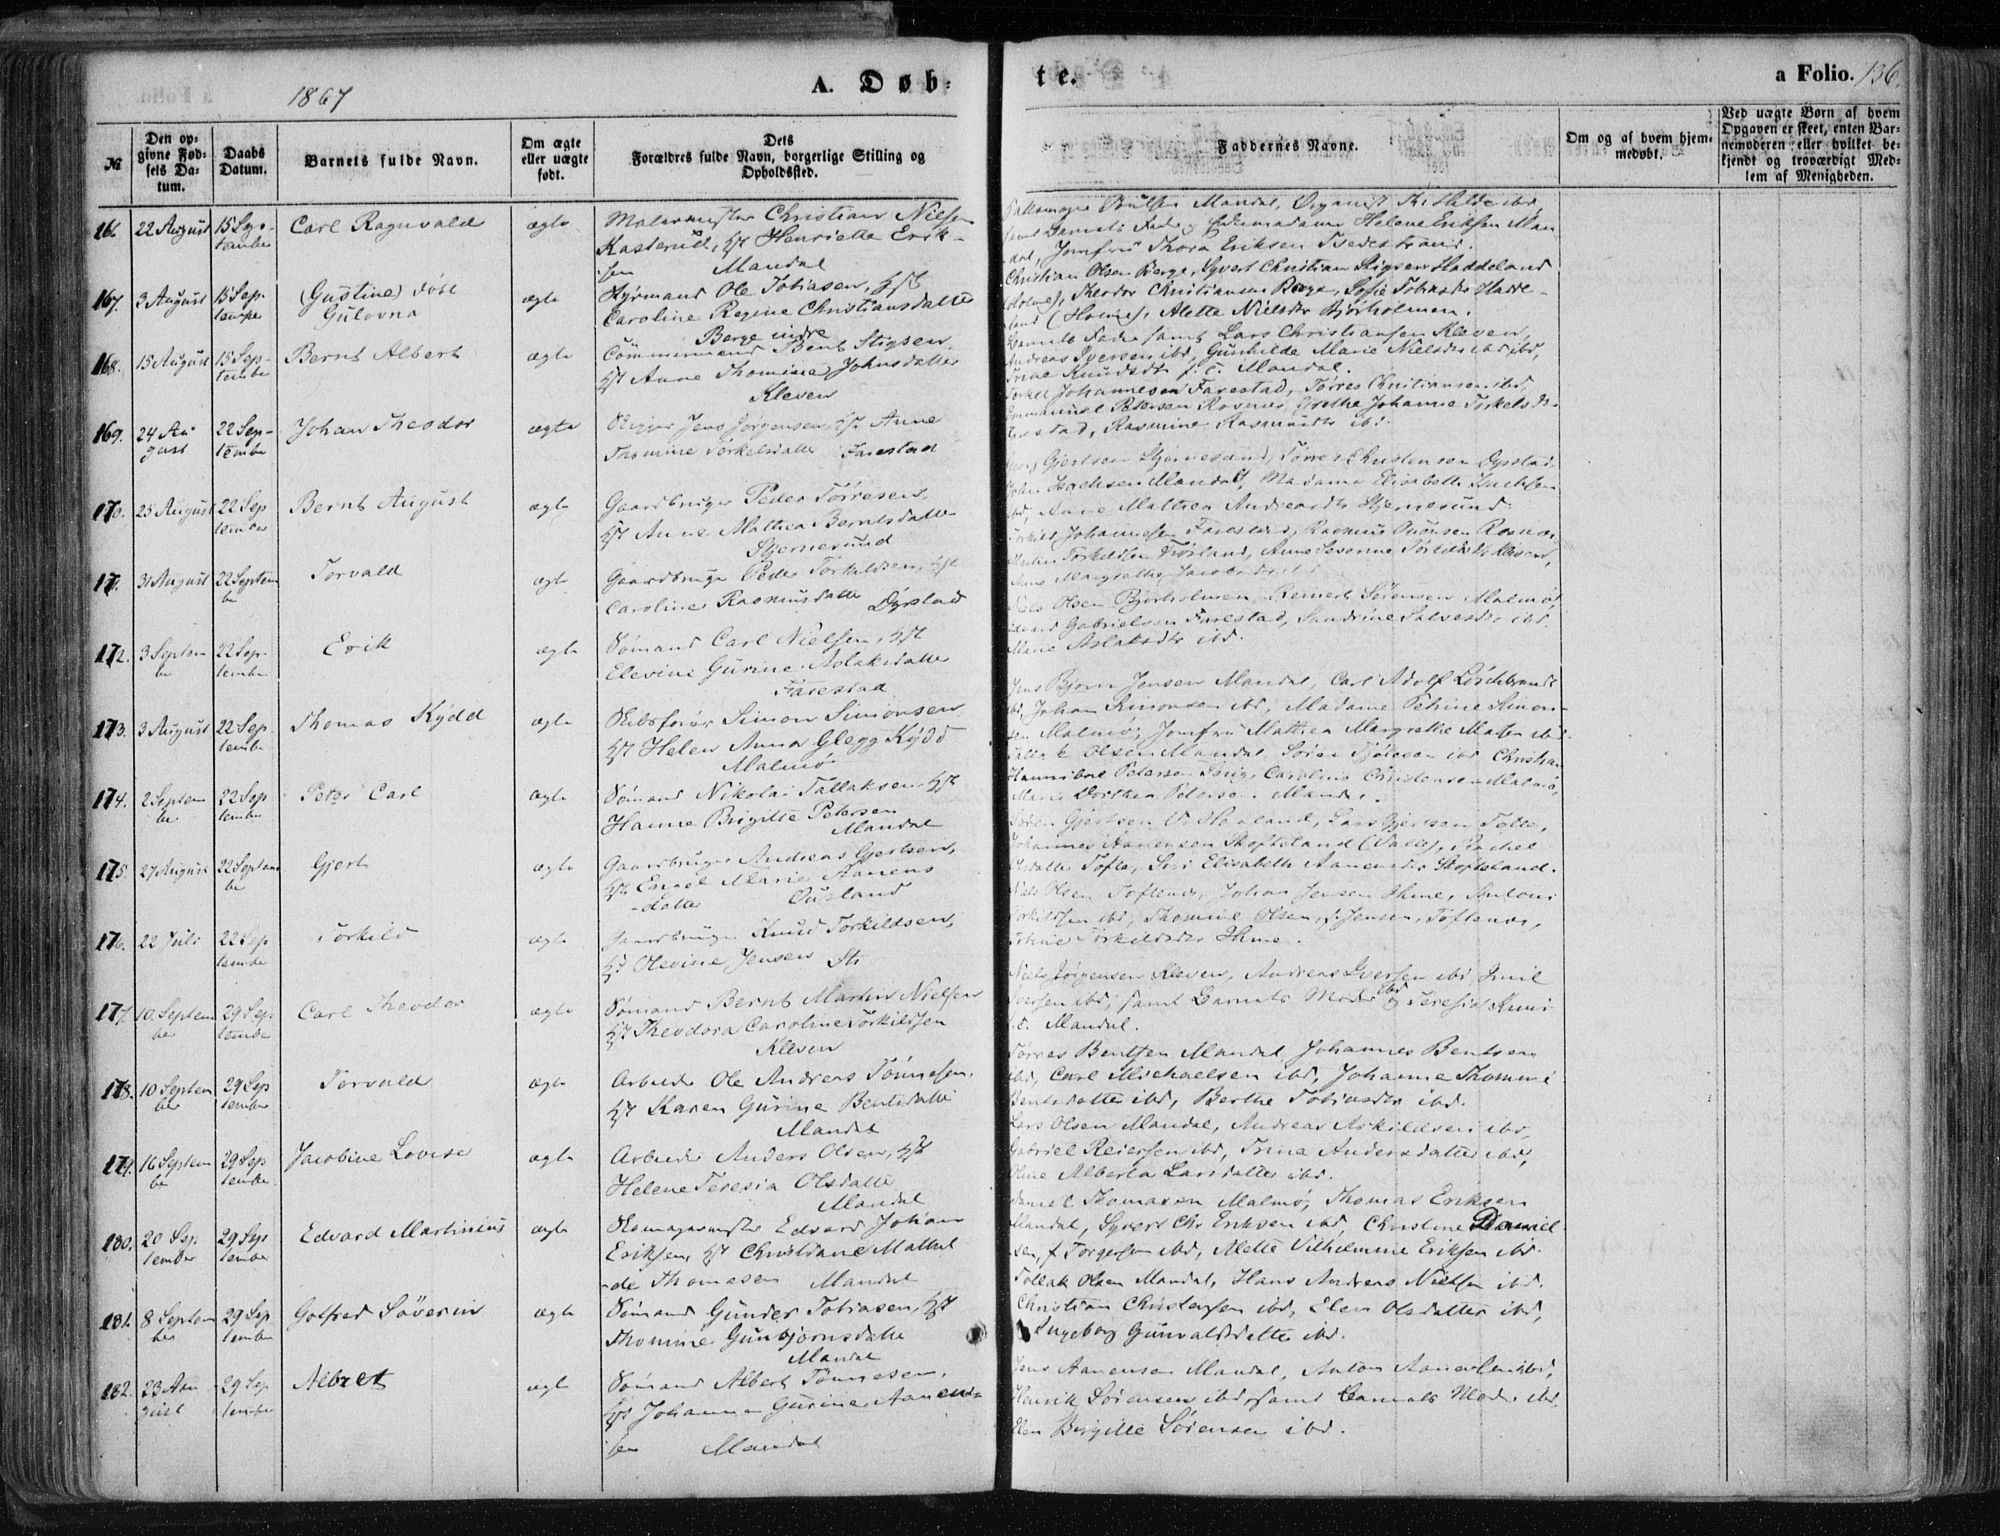 1867
A. Døb-
te.
a Folio. 136.
№
Den opgivne Fødsels Datum.
Daabs Datum.
Barnets fulde Navn.
Om ægte eller uægte født.
Dets Forældres fulde Navn, borgerlige Stilling og Opholdssted.
Faddernes Navne.
Om og af hvem hjemmedøbt.
Ved uægte Børn af hvem Opgaven er skeet, enten Barnemoderen eller hvilket bekjendt og troværdigt Medlem af Menigheden.
166. 22 August 15 September Carl Ragnvald ægte
Malermester Christian Nielsen
Henriette Erik-
sen Mandal
Mandal, Organist
Helene Eriksen Man
dal, Jomfru Thora Eriksen
167. 3 August 15 September (Gustine) døbt Gulovna ægte
Styrmand Ole Tobiasen, Hst
Caroline Regine Christiansdatter
Berge indre
Christian Olsen Berge, Syvert Christian Stigsen Haddeland
(Holme), Theodor Christiansen Berge, Sofie Tobiasdtr Hadde-
land (Holme), Alette Nielsdtr Bjørholmen.
168. 15 August 15 September Bernt Albert ægte
Bent Stigsen,
Hst Anne Thomine Johnsdatter
Kleven
Barnets Fader samt Lars Christiansen Kleven,
Andreas Iversen ibd, Gunhilde Marie Nielsdtr ibd,
Trine Knudsdtr f. t. Mandal.
169. 24 August 22 September Johan Theodor ægte
Rigger Jens Jørgensen, Hst Anne
Thomine Torkelsdatter Farestad
Torkel Johannesen Farestad, Tørres Christiansen ibd,
Emmanuel Petersen Rosnes, Grethe Johanne Torkelsdtr
Farestad, Rasmine Rasmusdtr ibd.
170. 25 August 22 September Bernt August ægte
Gaardbruger Peder Tørresen,
Hst Anne Mathea Berntsdatter
Stjernesund
Gjertsen Stjernesund, Tørres Christensen Dyrstad
John Isachsen Mandal, Madame Elisabeth Isachsen
ibd, Anne Mathea Andreasdtr Stjernesund.
171. 31 August 22 September Torvald ægte
Gaardbruger Peder Torkildsen, Hst
Caroline Rasmusdatter Dyrstad
Torkild Johannesen Farestad, Rasmus
Anne Severine Torkildsdtr Kleven,
Anne Margrethe
172. 3 September 22 September Erik ægte
Sømand Carl Nielsen, Hst
Elevine Gurine Aslaksdatter
Farestad
Niels Olsen Bjørholmen, Reinert Sørensen Malmø,
Gabrielsen Farestad, Sandrine Salvesdtr ibd
Marie Aslaksdtr ibd.
173. 3 August 22 September Thomas Kydd ægte
Skibsfører Simon Simonsen
Hst Helen Anna Glegg Kydd
Malmø
Jens Bjørn Jensen Mandal, Carl Adolf
ibd, Johan Simonsen ibd, Madame Petrine Simon-
sen Malmø, Jomfru Mathea Margrethe
174. 2 September 22 September Peter Carl ægte
Sømand Nikolai Tallaksen, Hst
Hanne Birgitte Petersen
Mandal
Tallak Olsen Mandal, Søren ibd Christian
Hannibal Petersen Caroline Christensen Malmø,
Marie Dorthea Petersen Mandal.
175. 27 August 22 September Gjert ægte
Gaardbruger Andreas Gjertsen,
Hst Engel Marie Aanens
-datter Ousland
Søren Gjertsen Lars Gjertsen Tofte,
Johannes Aanensen Skofteland (Valle), Rachel
Olsdatter Tofte, Siri Elisabeth Aanensdtr Skofteland.
176. 22 Juli 22 September Torkild ægte
Gaardbruger Knud Torkildsen,
Hst Olevine Jensen
Niels Olsen Toftenes, Johan Jensen Ihme,
Torkildsen ibd, Thomine Olsen, f. Jensen, Toftenes,
Torkildsdtr Ihme.
177. 10 September 29 September Carl Theodor ægte
Sømand Bernt Martin Nielsen
Hst Theodora Caroline Torkildsen
Kleven
Niels Jørgensen Kleven, Andreas Iversen ibd, Emil
Iversen ibd, samt Barnets Moder ibd
f. t. Mandal.
178. 10 September 29 September Torvald ægte
Arbeider Ole Andreas Tønnesen,
Hst Karen Gurine Bentsdatter
Mandal
Tørres Bentsen Mandal, Johannes Bentsen
ibd, Carl Michaelsen ibd, Johanne Thomine
Bentsdatter ibd, Berthe Tobiasdtr ibd.
179. 16 September 29 September Jacobine Lovise ægte
Arbeider Anders Olsen, Hst
Helene Teresia Olsdatter
Mandal
Lars Olsen Mandal, Andreas Askildsen ibd,
Gabriel Reiersen ibd, Trine Andersdatter ibd,
Oline Alberta Larsdatter ibd.
180. 20 September 29 September Edvard Martinius ægte
Edvard Johan
Eriksen, Hst Christiane Mathil
-de Thomasen Mandal
Daniel Thomasen Malmø, Thomas Eriksen
Mandal, Syvert Chr. Eriksen ibd, Christine Daniel
sen, f. Torgersen ibd, Alette Vilhelmine Eriksen ibd.
181. 8 September 29 September Golfred Søverin ægte
Sømand Gunder Tobiasen, Hst
Thomine Gunbjørnsdatter
Mandal
Tollak Olsen Mandal, Hans Andreas Nielsen ibd,
Christian Christensen ibd, Elen Olsdatter ibd,
Ingeborg Gunvaldsdatter ibd.
182. 23 August 29 September Albret ægte
Sømand Albert Tønnesen,
Hst Johanne Gurine Aanen-
sen Mandal
Jens Aanensen Mandal, Anton Aanensen ibd,
Henrik Sørensen ibd, samt Barnets Moder ibd,
Elen Birgitte Sørensen ibd.